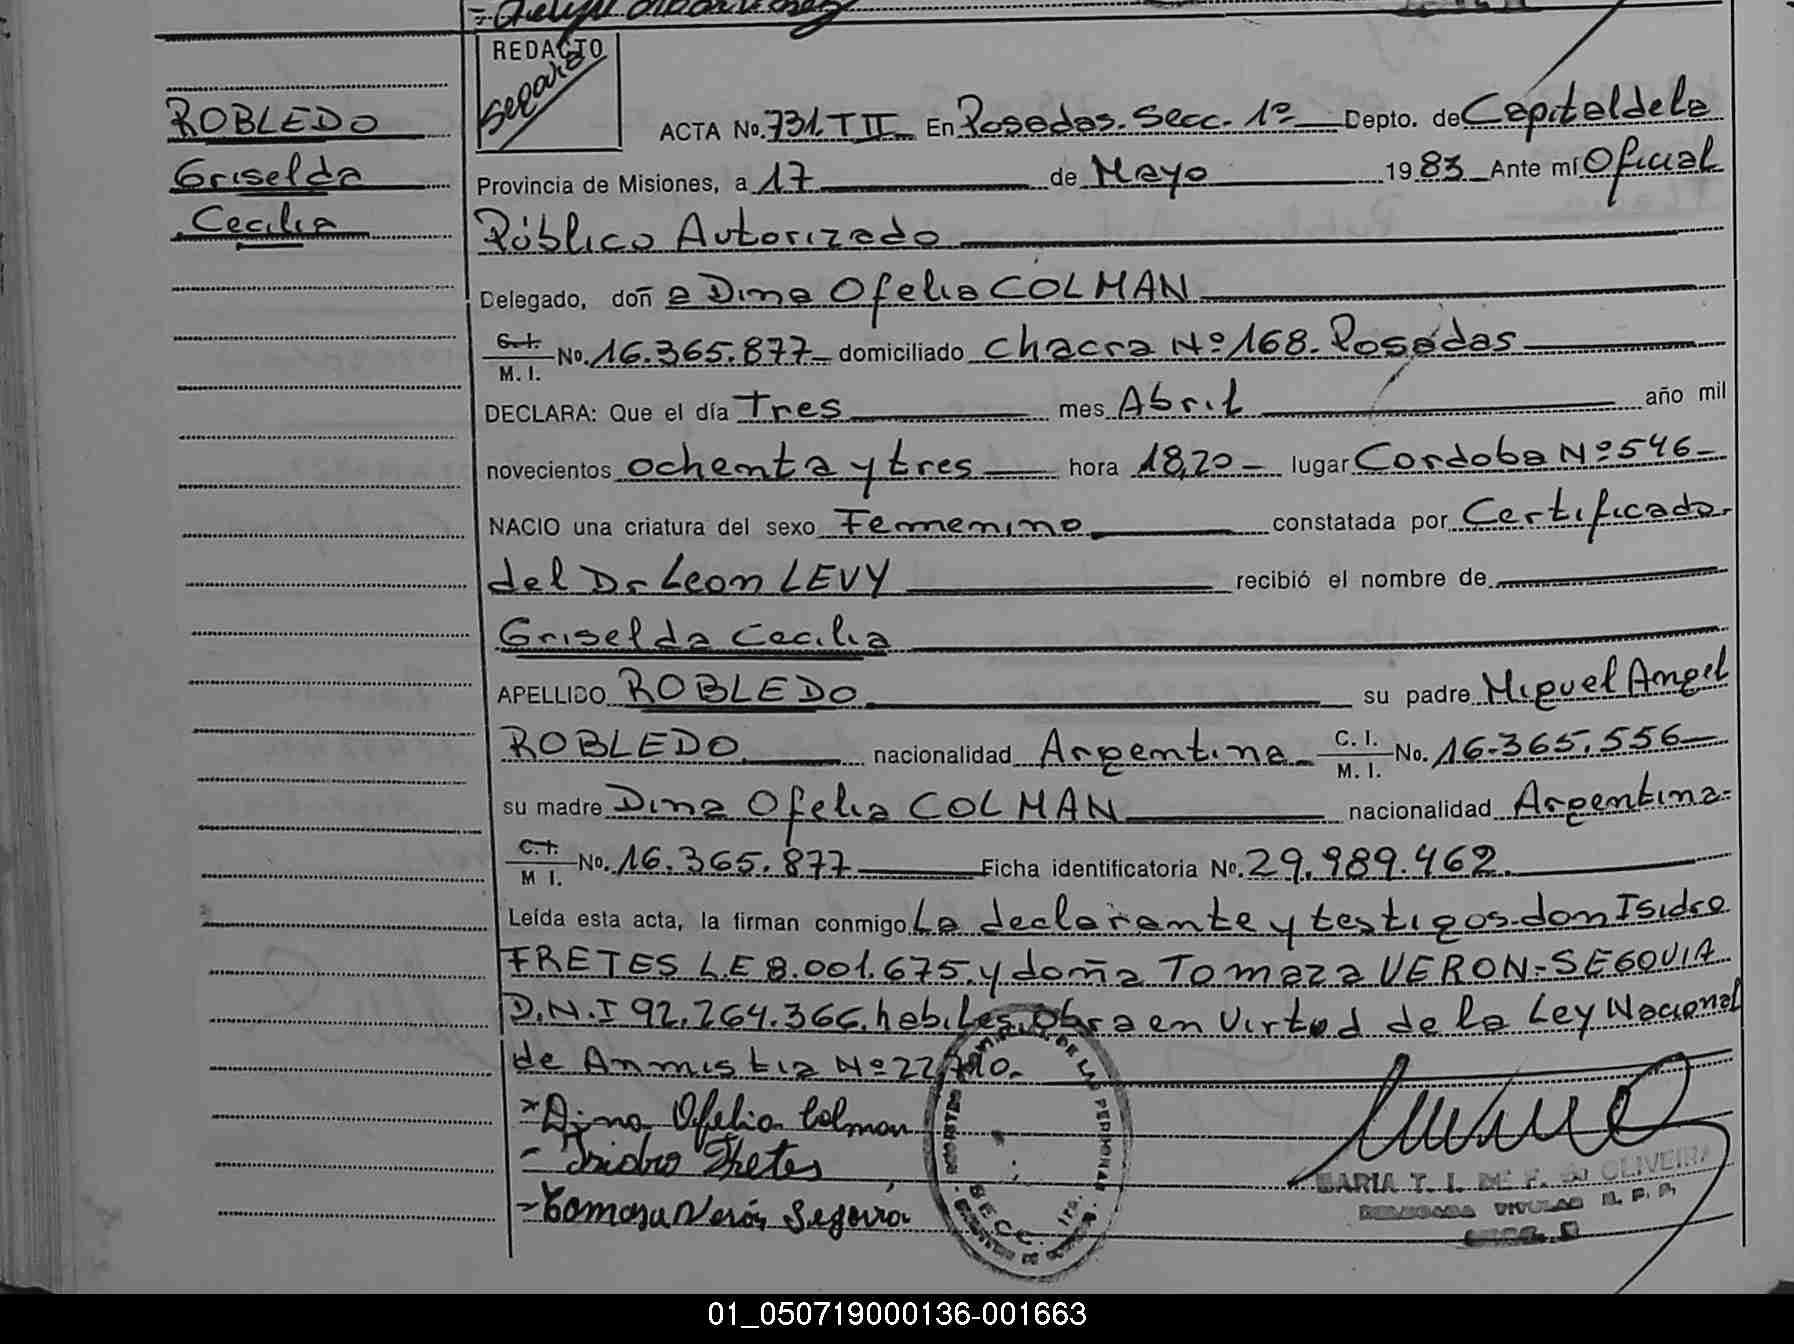 REDACTO
ROBLEDO
Griselda
Cecilia
ACTA No. 731. T II En Posadas. Secc. 1º Depto. de Capital de la
Provincia de Misiones, a 17 de Mayo 1983 Ante mí Oficial
Público Autorizado
Delegado, doña Dina Ofelia COLMAN
C.I. M.I. No. 16.365.877 domiciliado Chacra Nº 168. Posadas
DECLARA: Que el día Tres mes Abril año mil
novecientos ochenta y tres hora 18,20 lugar Cordoba Nº 546
NACIO una criatura del sexo Femenino constatada por Certificado
del Dr Leon LEVY recibió el nombre de
Griselda Cecilia
APELLIDO ROBLEDO su padre Miguel Angel
ROBLEDO nacionalidad Argentina C. I. M. I. No. 16.365.556
su madre Dina Ofelia COLMAN nacionalidad Argentina
C.I. M I. No. 16.365.877 Ficha identificatoria Nº. 29.989.462.
Leída esta acta, la firman conmigo La declarante y testigos don Isidro
FRETES L.E 8.001.675. y doña Tomaza VERON-SEGOVIA
D.N.I 92.264.366. habiles. Obra en Virtud de la Ley Nacional
de Anmistia Nº
Dina Ofelia Colman
Isidro Fretes
Tomasa Verón Segovia
MARIA T. I. DE F. OLIVEIRA
DELEGADA TITULAR R. P. P.
01_050719000136-001663